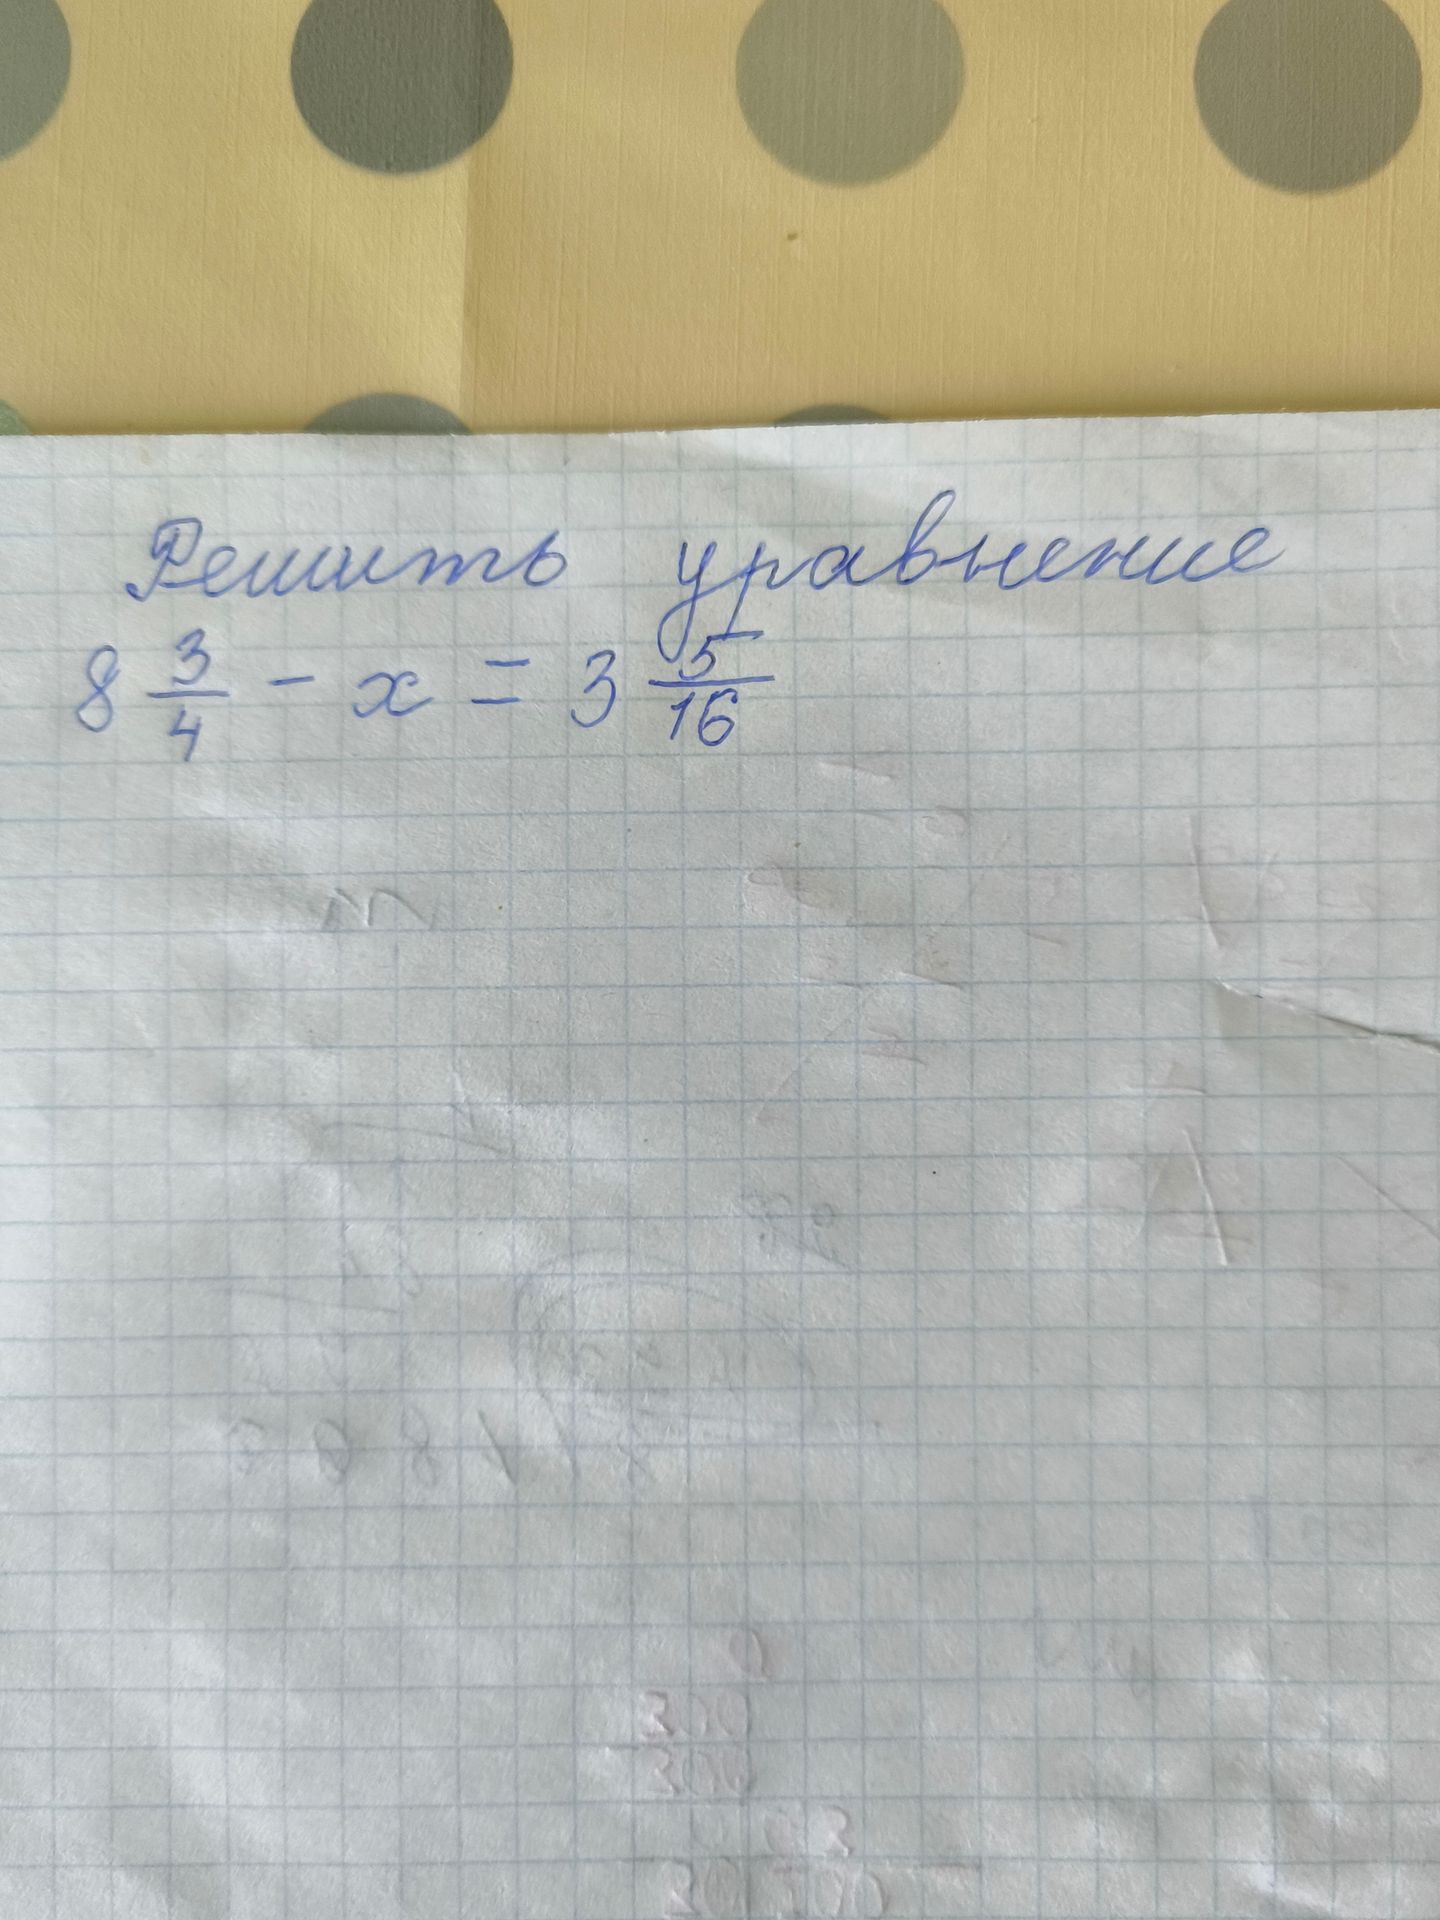 Решить уравнение
8 3/4 - x = 3 5/16